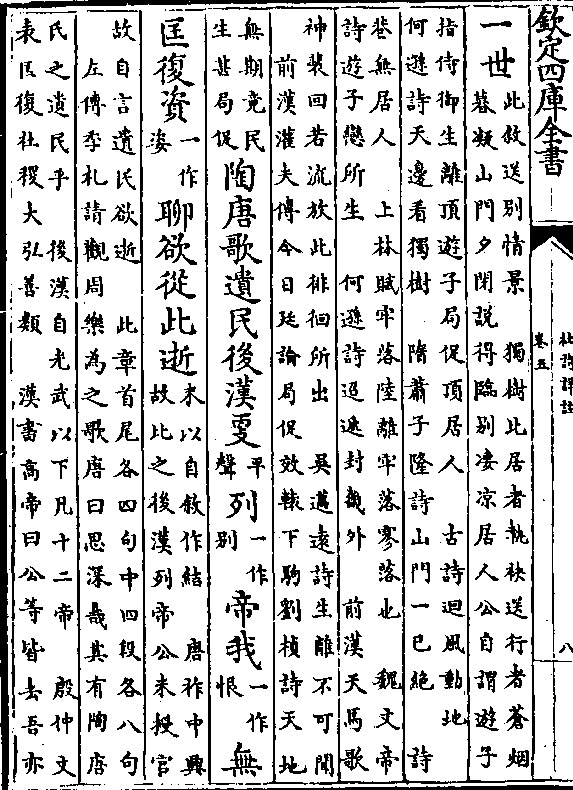 欽定四庫全書
杜詩詳註
卷五
八
一世
此敘送别情景　獨樹此居者執袂送行者蒼烟
暮凝山門夕閉説得臨别凄凉居人公自謂遊子
指侍御生離頂遊子局促頂居人　古詩迴風動地
何遜詩天邊看獨樹　隋蕭子隆詩山門一已絶　詩
巷無居人　上林賦牢落陸離牢落寥落也　魏文帝
詩遊子戀所生　何遜詩迢遞封畿外　前漢天馬歌
神裴回若流放此徘徊所出　吳邁遠詩生離不可聞
前漢灌夫傳今日廷論局促效轅下駒劉楨詩天地
無期竟民
生甚局促
陶唐歌遺民後漢更平聲列一作别帝我一作恨無
匡復資一作姿聊欲從此逝
末以自敘作結　唐祚中興
故比之後漢列帝公未授官
故自言遺民欲逝　此章首尾各四句中四段各八句
左傳季札請觀周樂為之歌唐曰思深哉其有陶唐
氏之遺民乎　後漢自光武以下凡十二帝　殷仲文
表匡復社稷大弘善類　漢書高帝曰公等皆去吾亦